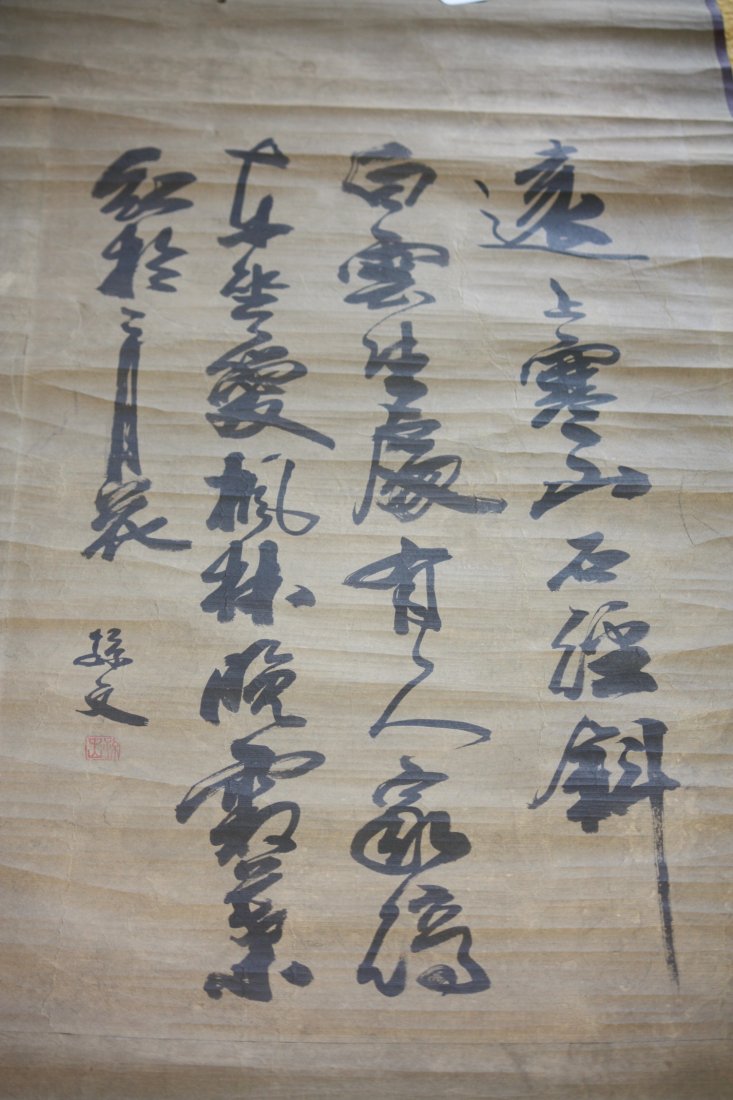 遠上寒山石徑斜
白雲生處有人家停
車坐愛楓林晚霜葉
紅於二月花
孫文